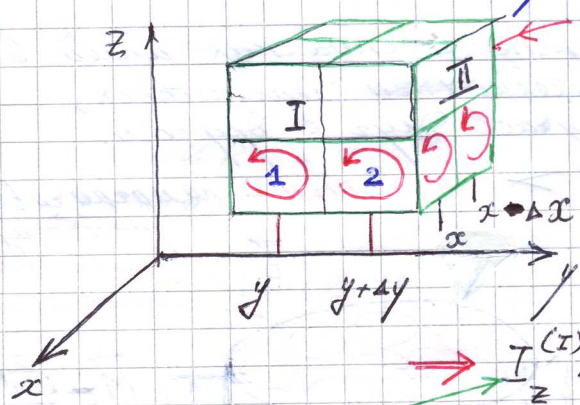 Z
I
II
1
2
x - Δx
x
y
y+Δy
y
x
I_z^(I)